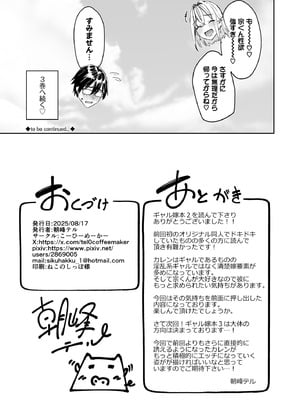 も〜〜〜♡
宗くん性欲
強すぎ〜♡
さすがに
今は無理だから
帰ってからね♡
すみません…
3巻へ続く♡
◆to be continued…◆
あとがき
ギャル嫁本2を読んで下さり
ありがとうございました！！
前回初のオリジナル同人でドキドキ
していたものの多くの方に読んで
頂き有難かったです！
カレンはギャルであるものの
淫乱系ギャルではなく清楚嫁要素が
多めになっています。
そして宗くんが大好きなので彼に
もっと求められたい気持ちがあります。
今回はその気持ちを前面に押し出した
内容になってあります。
楽しんで頂けたでしょうか。
さて次回！ギャル嫁本3は大体の
方向は決まっております…！
今回で前回よりもさらに直接的に
誘えるようになったカレンが
もっと積極的にエッチになっていく
姿がが描ければいいなと思って
いますのでご期待下さい…！
朝峰テル
おくづけ
発行日:2025/08/17
発行者:朝峰テル
サークル:こーひーめーかー
X:https://x.com/tel0coffeemaker
pixiv:https://www.pixiv.net/
users/2869005
mail:sikuhakku_1@hotmail.com
印刷:ねこのしっぽ様
朝峰
テル